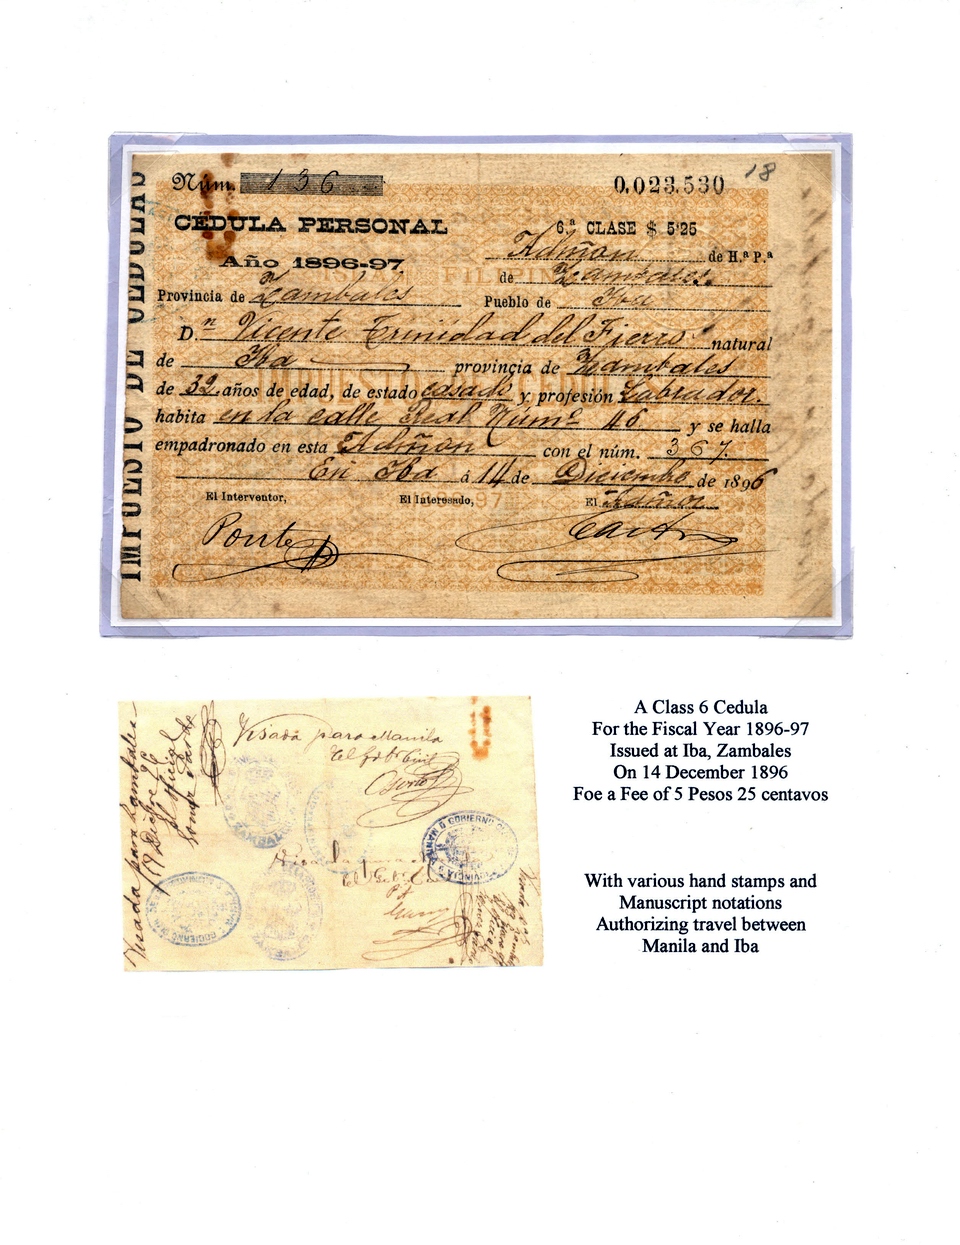 IMPUESTO DE CEDULAS
Núm. 136
0,023,530
18
CÉDULA PERSONAL
6.ª CLASE $ 5'25
Año 1896-97
Admón de H.ª P.ª
de Zambales.
Provincia de Zambales Pueblo de Iba
D.n Vicente Trinidad del Fierro natural
de Iba provincia de Zambales
de 32 años de edad, de estado casado y profesión Labrador.
habita en la calle Real Núm.º 46 y se halla
empadronado en esta Admñon con el núm. 367.
En Iba á 14 de Diciembre de 1896
El Interventor, El Interesado, El
Ponte
Visada para Manila
Visada para Zambales
A Class 6 Cedula
For the Fiscal Year 1896-97
Issued at Iba, Zambales
On 14 December 1896
Foe a Fee of 5 Pesos 25 centavos
With various hand stamps and
Manuscript notations
Authorizing travel between
Manila and Iba